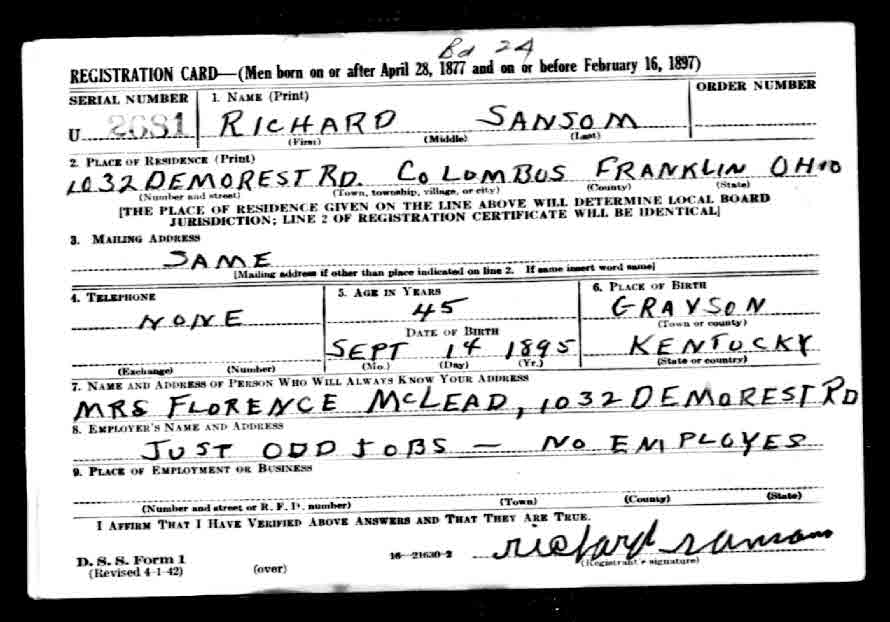 Bd 24
REGISTRATION CARD—(Men born on or after April 28, 1877 and on or before February 16, 1897)
SERIAL NUMBER 1. NAME (Print) ORDER NUMBER
U 2681 RICHARD SANSOM
(First) (Middle) (Last)
2. PLACE OF RESIDENCE (Print)
1032 DEMOREST RD. COLOMBUS FRANKLIN OHIO
(Number and street) (Town, township, village, or city) (County) (State)
[THE PLACE OF RESIDENCE GIVEN ON THE LINE ABOVE WILL DETERMINE LOCAL BOARD
JURISDICTION; LINE 2 OF REGISTRATION CERTIFICATE WILL BE IDENTICAL]
3. MAILING ADDRESS
SAME
[Mailing address if other than place indicated on line 2. If same insert word same]
4. TELEPHONE 5. AGE IN YEARS 6. PLACE OF BIRTH
NONE 45 GRAYSON
DATE OF BIRTH (Town or county)
SEPT 14 1895 KENTUCKY
(Exchange) (Number) (Mo.) (Day) (Yr.) (State or country)
7. NAME AND ADDRESS OF PERSON WHO WILL ALWAYS KNOW YOUR ADDRESS
MRS FLORENCE MCLEAD, 1032 DEMOREST RD
8. EMPLOYER'S NAME AND ADDRESS
JUST ODD JOBS — NO EMPLOYER
9. PLACE OF EMPLOYMENT OR BUSINESS
(Number and street or R. F. D. number) (Town) (County) (State)
I AFFIRM THAT I HAVE VERIFIED ABOVE ANSWERS AND THAT THEY ARE TRUE.
D. S. S. Form 1 16—21630-2 richard sansom
(Revised 4-1-42) (over) (Registrant's signature)